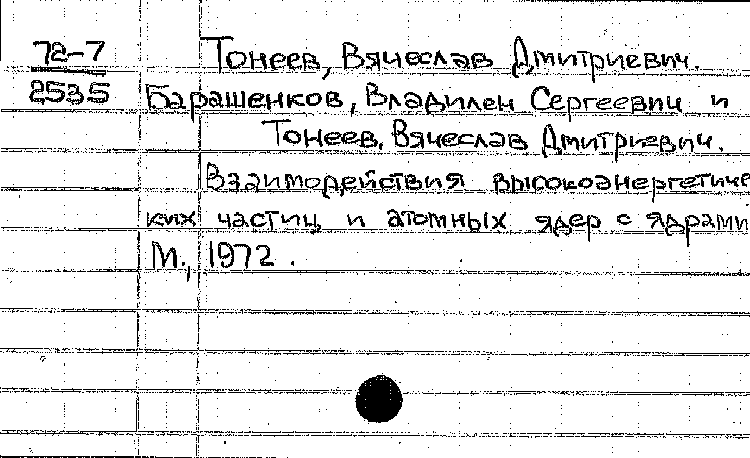 72-7
2535
Тонеев, Вячеслав Дмитриевич.
Барашенков, Владилен Сергеевич и
Тонеев, Вячеслав Дмитриевич.
Взаимодействия высокоэнергетиче
ких частиц и атомных ядер с ядрами
М., 1972.